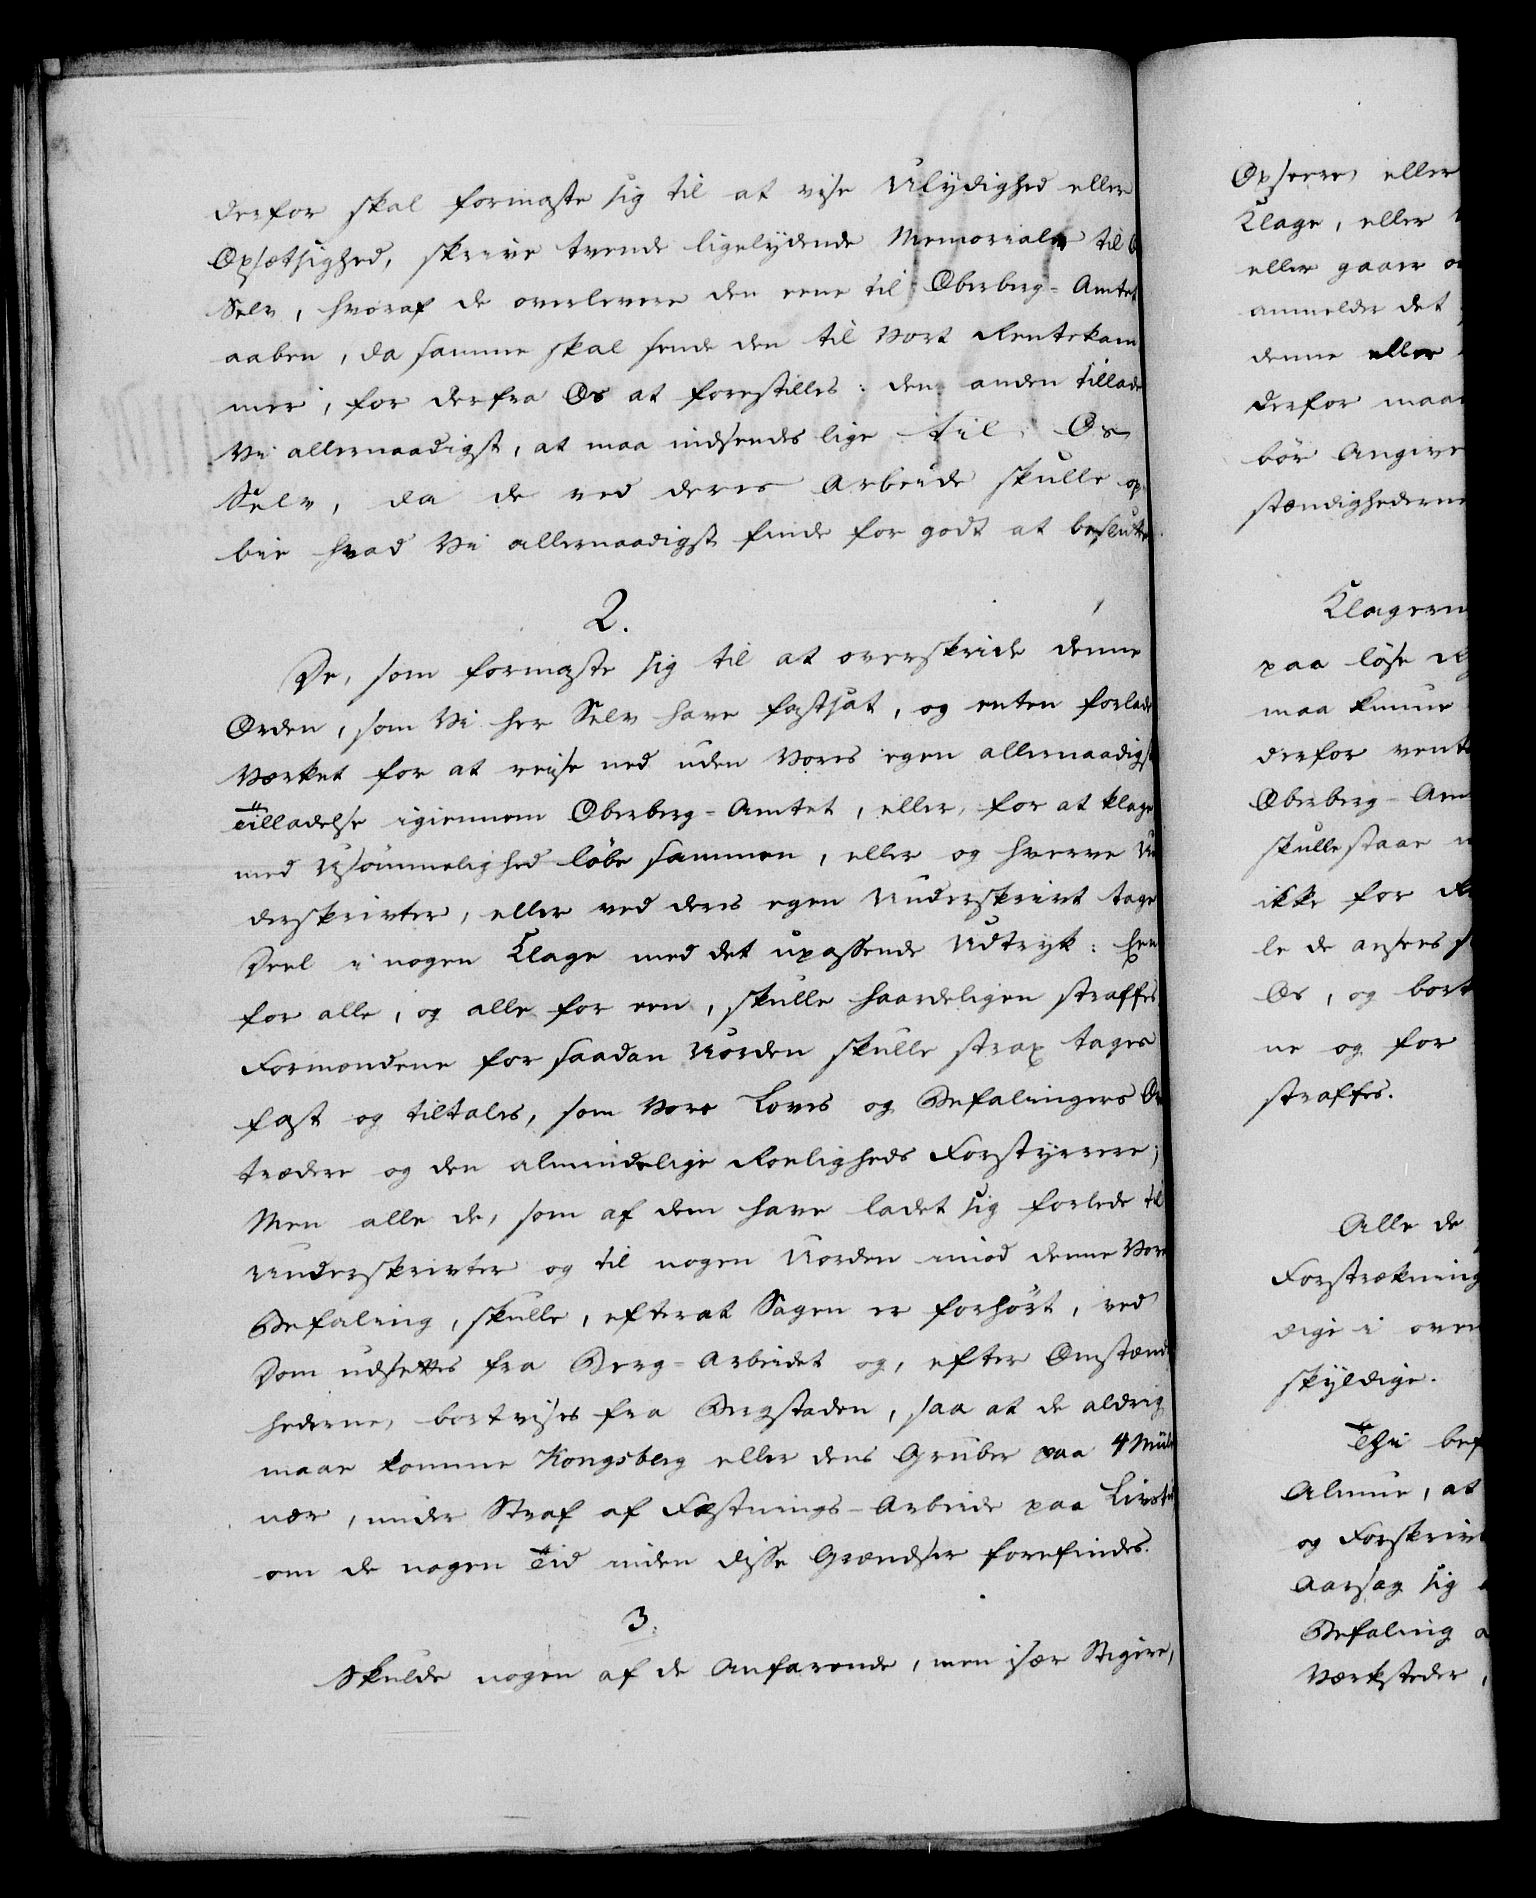 derfor skal formaste sig til at vise Ulydighed eller
Opsætsighed, skrive tvende ligelydende Memorialer til
Selv, hvoraf de overlevere den eene til Oberberg-Amtet
aaben, da samme skal sende den til Vort Rentekam
mer, for derfra Os at forestilles: den anden tillade
Vi allernaadigst, at maa indsendes lige til Os
Selv, da de ved deres Arbeide skulle op
bie hvad Vi allernaadigst finde for godt at beslutte.
2.
De, som formaste sig til at overskride denne
Orden, som Vi her Selv have fastsat, og enten forlade
Værket for at reise ned uden Vores egen allernaadigst
Tilladelse igiennem Oberberg-Amtet, eller, for at klage
med Usømmelighed løbe sammen, eller og hverve Un
derskrivter, eller ved deres egen Underskrivt tage
Deel i nogen Klage med det upassende Udtryk: Een
for alle, og alle for een, skulle haardeligen straffes
Formændene for saadan Uorden skulle strax tages
fast og tiltales, som Vore Loves og Befalingers Ov
trædere og den almindelige Roeligheds Forstyrrere;
Men alle de, som af dem have ladet sig forlede til
Underskrivter og til nogen Uorden imod denne Vore
Befaling, skulle, efterat Sagen er forhørt, ved
Dom udsættes fra Berg-Arbeidet og, efter Omstændig
hederne, bortvises fra Bergstaden, saa at de aldrig
maae komme Kongsberg eller dens Gruber paa 4 Miile
nær, under Straf af Fæstnings-Arbeide paa Livstid
om de nogen Tid inden disse Grændser forefindes.
3.
Skulde nogen af de Anfarende, men især Stigere,
Opseere, eller
Klage, eller
eller gaaer
anmelder det
denne eller
derfor maae
bør Angive
stændighederne
Klagern
paa løse
maa kunne
derfor vent
Oberberg-Am
skulle staae
ikke for
le de ansees
Os, og bort
ne og for
straffes.
Alle de
Forstrækning
dige i over
skyldige.
Thi bef
Almue, at
og Forskriv
Aarsag sig
Befaling
Værksteder,